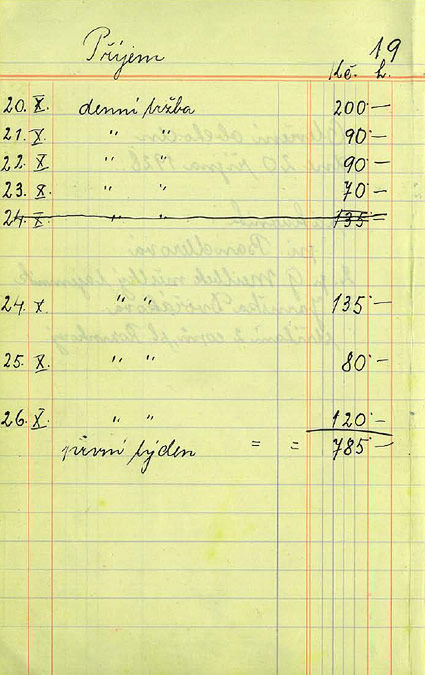 Příjem 19
Kč. h.
20. X. denní tržba 200·—
21. X. " " 90·—
22. X. " " 90·—
23. X. " " 70·—
24. X. " " 135=
24. X. " " 135·—
25. X. " " 80·—
26. X. " " 120·—
první týden = = 785·—